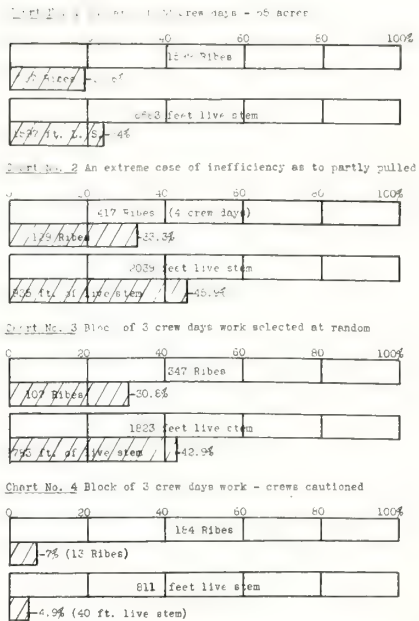 crew days - 55 acres
20 60 80 100%
Ribes
feet live stem
1577 ft. L. S. 24%
Chart No. 2 An extreme case of inefficiency as to partly pulled
0 20 40 60 80 100%
417 Ribes (4 crew days)
139 Ribes 33.3%
2039 feet live stem
935 ft. of live stem 45.9%
Chart No. 3 Block of 3 crew days work selected at random
0 20 40 60 80 100%
347 Ribes
107 Ribes 30.8%
1823 feet live stem
793 ft. of live stem 42.9%
Chart No. 4 Block of 3 crew days work - crews cautioned
0 20 40 60 80 100%
184 Ribes
7% (13 Ribes)
811 feet live stem
4.9% (40 ft. live stem)